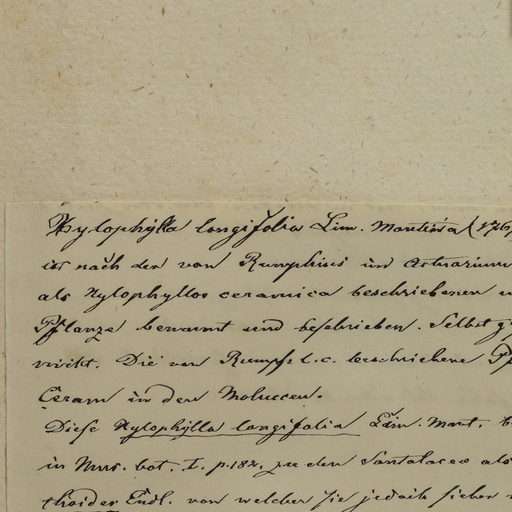 Xylophylla longifolia Linn. Mantissa (1767
ist nach den von Rumphius im Actuarium
als Xylophyllos ceramica beschriebenen
Pflanze benannt und beschrieben. Selbst
nicht. Die von Rumpf l. c. beschriebene
Ceram in den Moluccen.
Diese Xylophylla longifolia Linn. Mant.
in Mus. bot. I. p. 182. zu den Santalaceo als
Endl. von welcher sie jedoch sicher